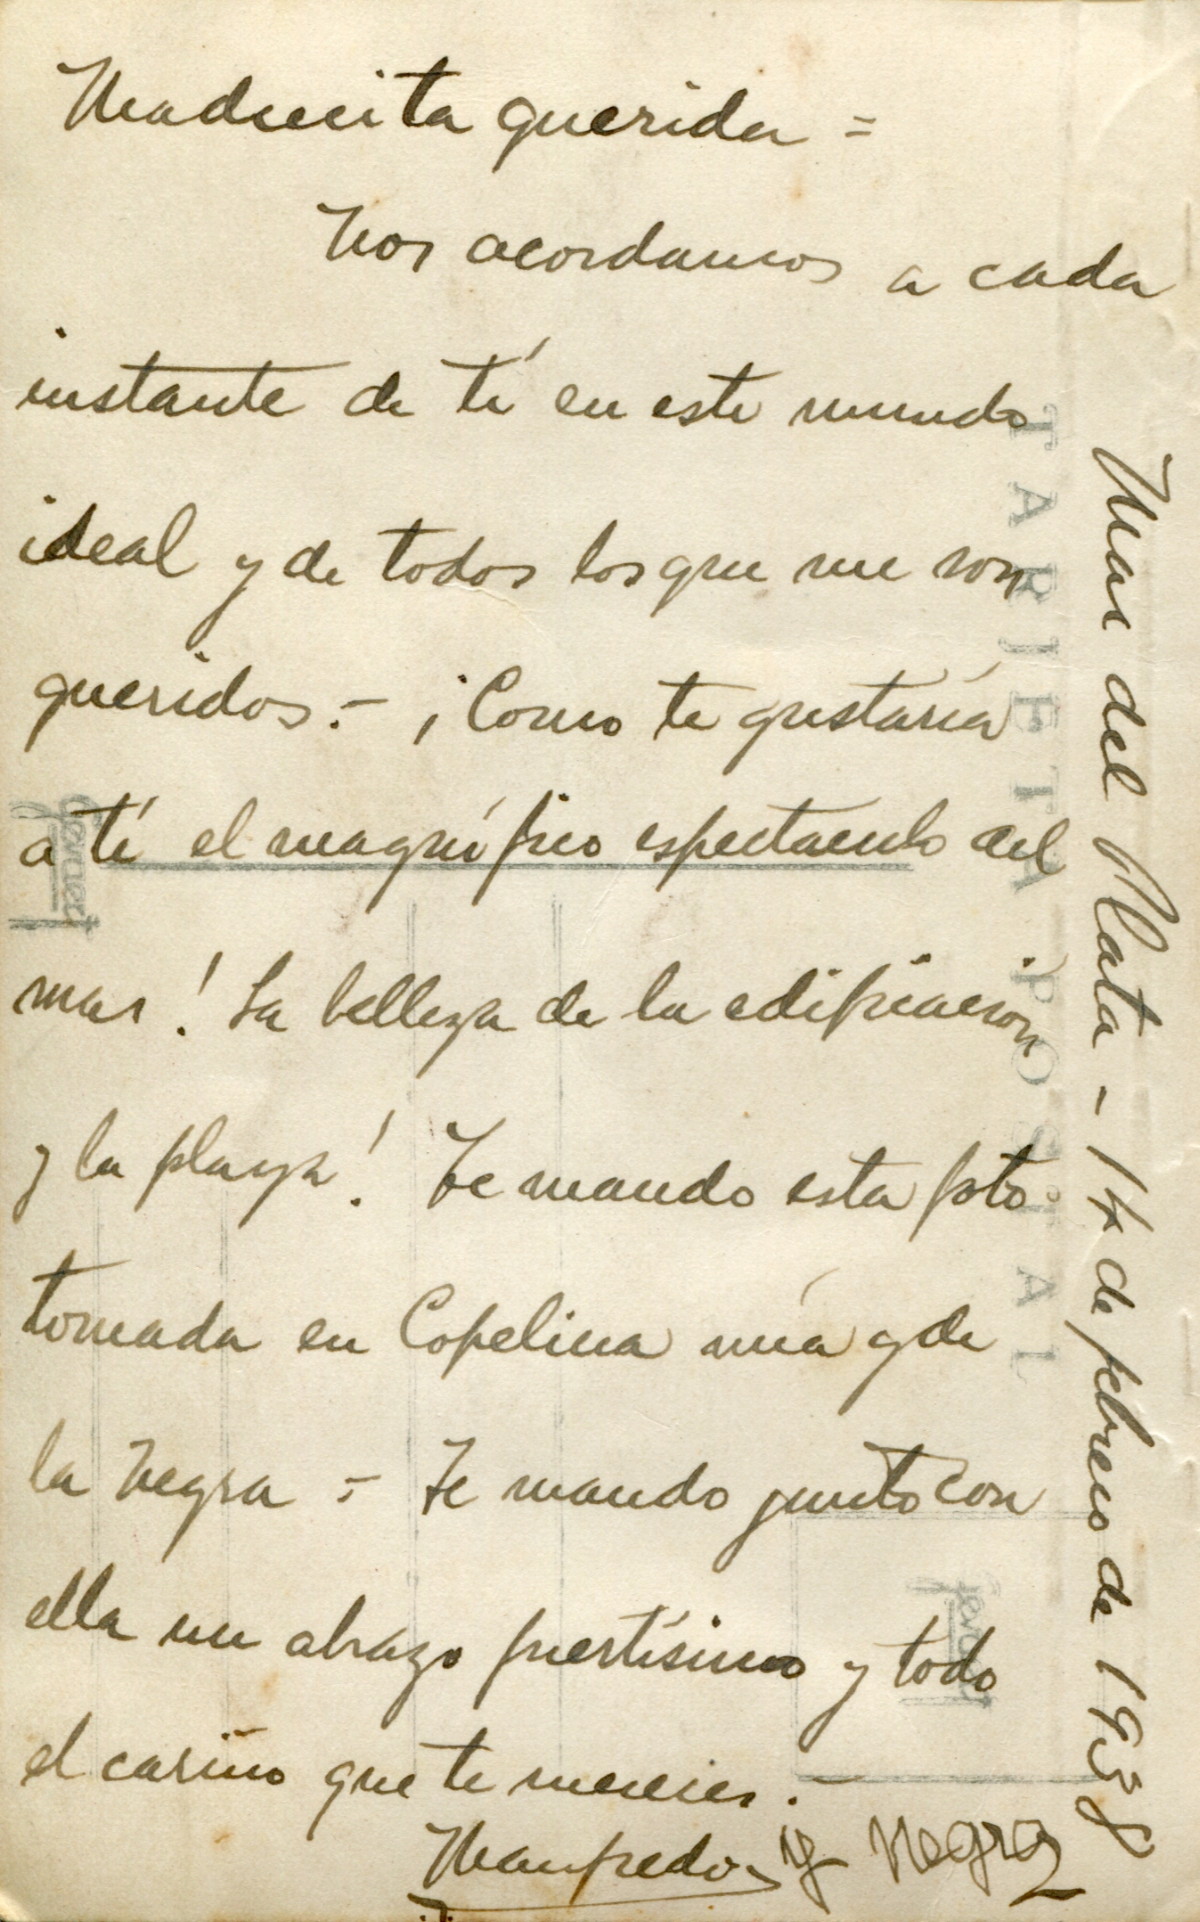 Madrecita querida =
Nos acordamos a cada
instante de tí en este mundo
ideal y de todos los que me son
queridos.- ¡Como te gustaría
a tí el magnífico espectaculo del
mar! La belleza de la edificacion
y la playa! Te mando esta foto
tomada en Copelina mía y de
la Negra = Te mando junto con
ella un abrazo fuertísimo y todo
el cariño que te mereces.-
Manfredo y Negra
Mar del Plata - 14 de febrero de 1938
TARJETA POSTAL
Gevaert
Gevaert